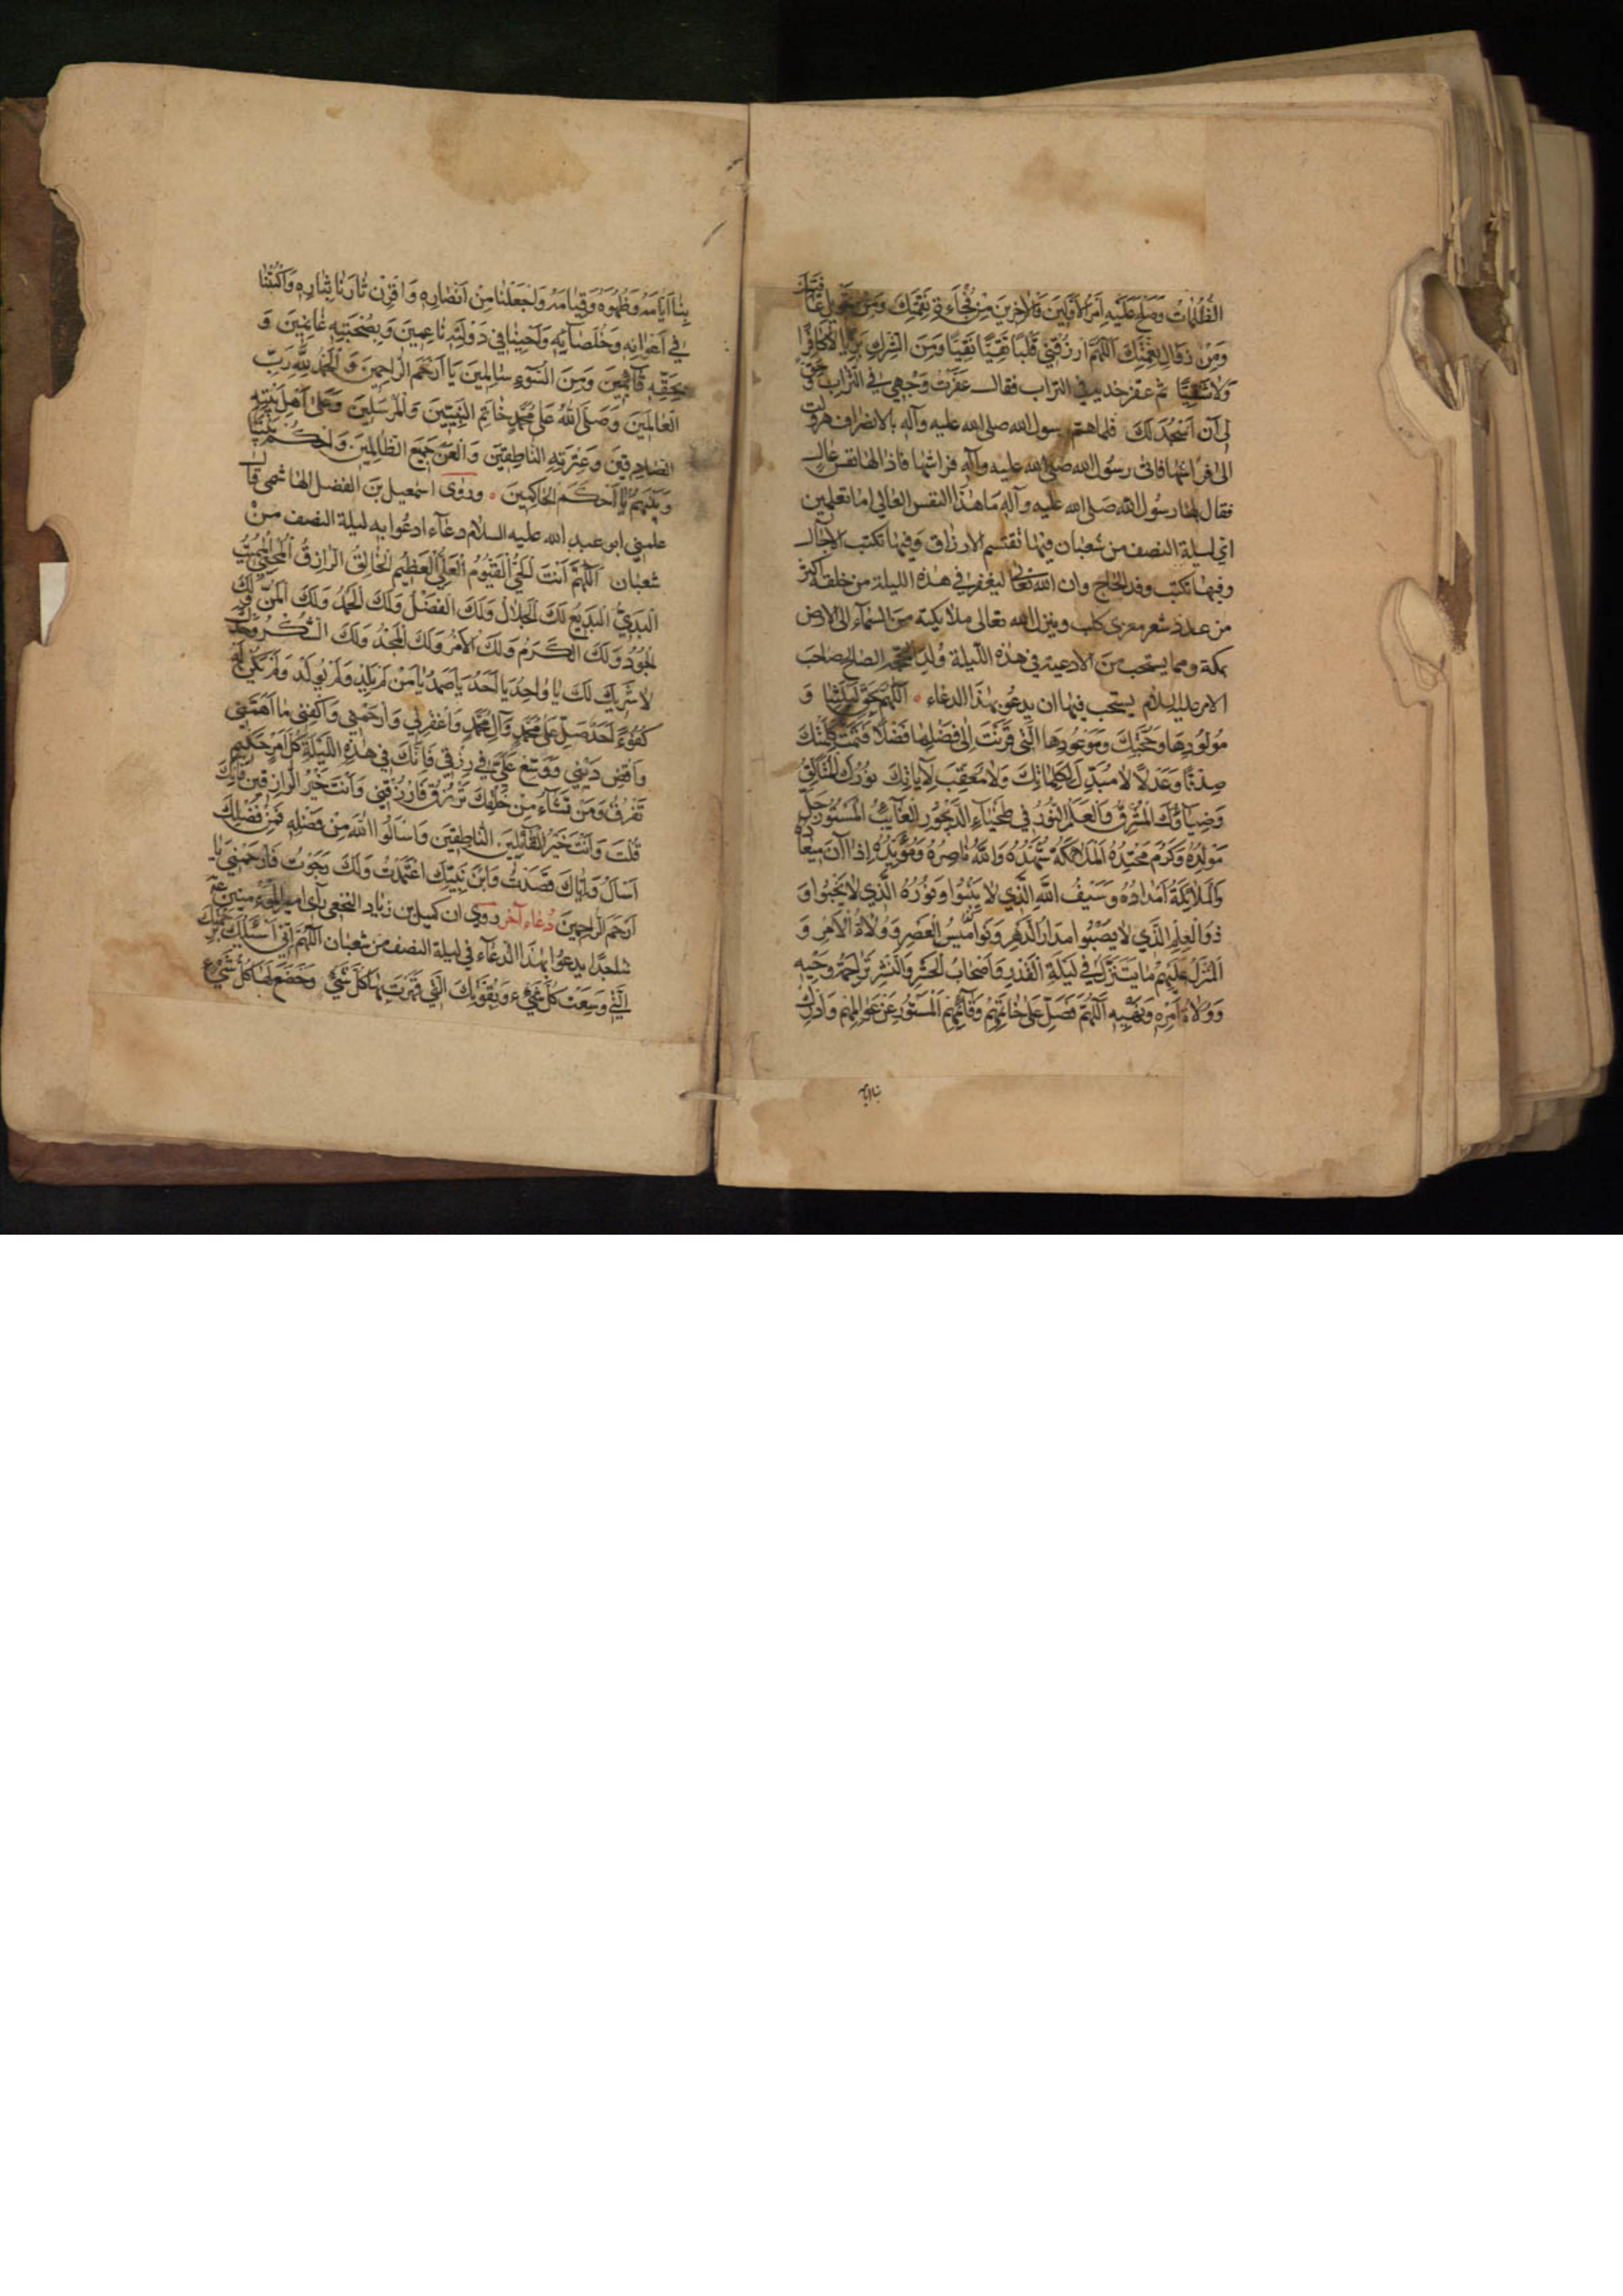 الظُّلُمَاتُ وَصَلَحَ عَلَيْهِ اَمْرُ الْاَوَّلِينَ وَالْاٰخِرِينَ مِنْ فُجْاَءَةِ نَقِمَتِكَ وَمِنْ تَحْوِيلِ عَافِيَتِكَ
وَمِنْ زَوَالِ نِعْمَتِكَ اَللّٰهُمَّ ارْزُقْنِي قَلْبًا تَقِيًّا نَقِيًّا وَمِنَ الشِّرْكِ بَرِيئًا لٰا كَافِرًا
وَلٰا شَقِيًّا ثم عفر خديه في التراب فقال عَفَّرْتُ وَجْهِي فِي التُّرَابِ وَحُقَّ
لِي اَنْ اَسْجُدَ لَكَ فلما هم رسول الله صلى الله عليه وآله بالانصراف هرولت
الى فراشها فاتى رسول الله صلى الله عليه وآله فراشها فاذا لها نفس عال
فقال لها رسول الله صلى الله عليه وآله ما هذا النفس العالي اما تعلمين
اي ليلة النصف من شعبان فيها تقتسم الارزاق وفيها تكتب الآجال
وفيها تكتب وفد الحاج وان الله تعالى ليغفر في هذه الليلة من خلقه اكثر
من عدد شعر معزى كلب وينزل الله تعالى ملائكته من السماء الى الارض
بمكة ومما يستحب من الادعية في هذه الليلة وُلِدَ الحجة الصالح صاحب
الامر عليه السلام يستحب فيها ان يدعو بهذا الدعاء اَللّٰهُمَّ بِحَقِّ لَيْلَتِنَا وَ
مَوْلُودِهَا وَحُجَّتِكَ وَمَوْعُودِهَا الَّتِي قَرَنْتَ اِلٰى فَضْلِهَا فَضْلًا فَتَمَّتْ كَلِمَتُكَ
صِدْقًا وَعَدْلًا لٰا مُبَدِّلَ لِكَلِمَاتِكَ وَلٰا مُعَقِّبَ لِاٰيَاتِكَ نُورُكَ الْمُتَاَلِّقُ
وَضِيَاؤُكَ الْمُشْرِقُ وَالْعَلَمُ النُّورُ فِي طَخْيَاءِ الدَّيْجُورِ الْغَائِبُ الْمَسْتُورُ جَلَّ
مَوْلِدُهُ وَكَرُمَ مَحْتِدُهُ اَلْمَلَائِكَةُ شُهَّدُهُ وَاللّٰهُ نَاصِرُهُ وَمُؤَيِّدُهُ اِذَا اٰنَ مِيعَادُهُ
وَالْمَلَائِكَةُ اَمْدَادُهُ وَسَيْفُ اللّٰهِ الَّذِي لٰا يَنْبُوا وَنُورُهُ الَّذِي لٰا يَخْبُوا وَ
ذُو الْعِلْمِ الَّذِي لٰا يَصْبُوا مَدَارُ الدَّهْرِ وَنَوَامِيسُ الْعَصْرِ وَوُلَاةُ الْاَمْرِ وَ
الْمُنَزَّلُ عَلَيْهِمْ مَا يَتَنَزَّلُ فِي لَيْلَةِ الْقَدْرِ وَاَصْحَابُ الْحَشْرِ وَالنَّشْرِ تَرَاجِمَةُ وَحْيِهِ
وَوُلَاةُ اَمْرِهِ وَنَهْيِهِ اَللّٰهُمَّ فَصَلِّ عَلٰى خَاتَمِهِمْ وَقَائِمِهِمْ الْمَسْتُورِ عَنْ عَوَالِمِهِمْ وَاَدْرِكْ
بنا ايامه
بِنَا اَيَّامَهُ وَظُهُورَهُ وَقِيَامَهُ وَاجْعَلْنَا مِنْ اَنْصَارِهِ وَاقْرِنْ ثَارَنَا بِثَارِهِ وَاكْتُبْنَا
فِي اَعْوَانِهِ وَخُلَصَائِهِ وَاَحْيِنَا فِي دَوْلَتِهِ نَاعِمِينَ وَبِصُحْبَتِهِ غَانِمِينَ وَ
بِحَقِّهِ قَائِمِينَ وَمِنَ السُّوءِ سَالِمِينَ يَا اَرْحَمَ الرَّاحِمِينَ وَالْحَمْدُ لِلّٰهِ رَبِّ
الْعَالَمِينَ وَصَلَّى اللّٰهُ عَلٰى مُحَمَّدٍ خَاتَمِ النَّبِيِّينَ وَالْمُرْسَلِينَ وَعَلٰى اَهْلِ بَيْتِهِ
الصَّادِقِينَ وَعِتْرَتِهِ النَّاطِقِينَ وَالْعَنْ جَمِيعَ الظَّالِمِينَ وَاحْكُمْ بَيْنَنَا
وَبَيْنَهُمْ يَا اَحْكَمَ الْحَاكِمِينَ وروى اسمعيل بن الفضل الهاشمي قال
علمني ابو عبد الله عليه السلام دعاء ادعوا به ليلة النصف من
شعبان اَللّٰهُمَّ اَنْتَ الْحَيُّ الْقَيُّومُ الْعَلِيُّ الْعَظِيمُ الْخَالِقُ الرَّازِقُ الْمُحْيِي الْمُمِيتُ
الْبَدِيءُ الْبَدِيعُ لَكَ الْجَلَالُ وَلَكَ الْفَضْلُ وَلَكَ الْحَمْدُ وَلَكَ الْمَنُّ وَلَكَ
الْجُودُ وَلَكَ الْكَرَمُ وَلَكَ الْاَمْرُ وَلَكَ الْمَجْدُ وَلَكَ الشُّكْرُ وَحْدَكَ
لٰا شَرِيكَ لَكَ يَا وَاحِدُ يَا اَحَدُ يَا صَمَدُ يَا مَنْ لَمْ يَلِدْ وَلَمْ يُولَدْ وَلَمْ يَكُنْ لَهُ
كُفُوًا اَحَدٌ صَلِّ عَلٰى مُحَمَّدٍ وَاٰلِ مُحَمَّدٍ وَاغْفِرْ لِي وَارْحَمْنِي وَاكْفِنِي مَا اَهَمَّنِي
وَاقْضِ دَيْنِي وَوَسِّعْ عَلَيَّ فِي رِزْقِي فَاِنَّكَ فِي هٰذِهِ اللَّيْلَةِ كُلَّ اَمْرٍ حَكِيمٍ
تَفْرُقُ وَمَنْ تَشَاءُ مِنْ خَلْقِكَ تَرْزُقُ فَارْزُقْنِي وَاَنْتَ خَيْرُ الرَّازِقِينَ فَاِنَّكَ
قُلْتَ وَاَنْتَ خَيْرُ الْقَائِلِينَ النَّاطِقِينَ وَاسْاَلُوا اللّٰهَ مِنْ فَضْلِهِ فَمِنْ فَضْلِكَ
اَسْاَلُ وَاِيَّاكَ قَصَدْتُ وَابْنَ نَبِيِّكَ اعْتَمَدْتُ وَلَكَ رَجَوْتُ فَارْحَمْنِي يَا
اَرْحَمَ الرَّاحِمِينَ دعاء آخر روي ان كميل بن زياد النخعي رأى امير المؤمنين ع
ساجدا يدعوا بهذا الدعاء في ليلة النصف من شعبان اَللّٰهُمَّ اِنِّي اَسْئَلُكَ بِرَحْمَتِكَ
الَّتِي وَسِعَتْ كُلَّ شَيْءٍ وَبِقُوَّتِكَ الَّتِي قَهَرْتَ بِهَا كُلَّ شَيْءٍ وَخَضَعَ لَهَا كُلُّ شَيْءٍ